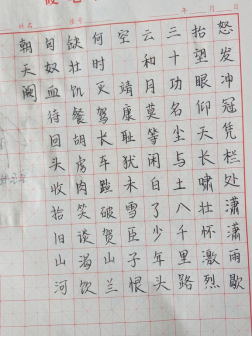 姓名 年 月 日
怒发冲冠凭栏处潇潇雨歇
抬望眼仰天长啸壮怀激烈
三十功名尘与土八千里路
云和月莫等闲白了少年头
空 靖康耻犹未雪臣子恨
何时灭驾长车踏破贺山兰
缺壮饥餐胡虏肉笑谈渴饮
匈奴血待回头收拾旧山河
朝天阙